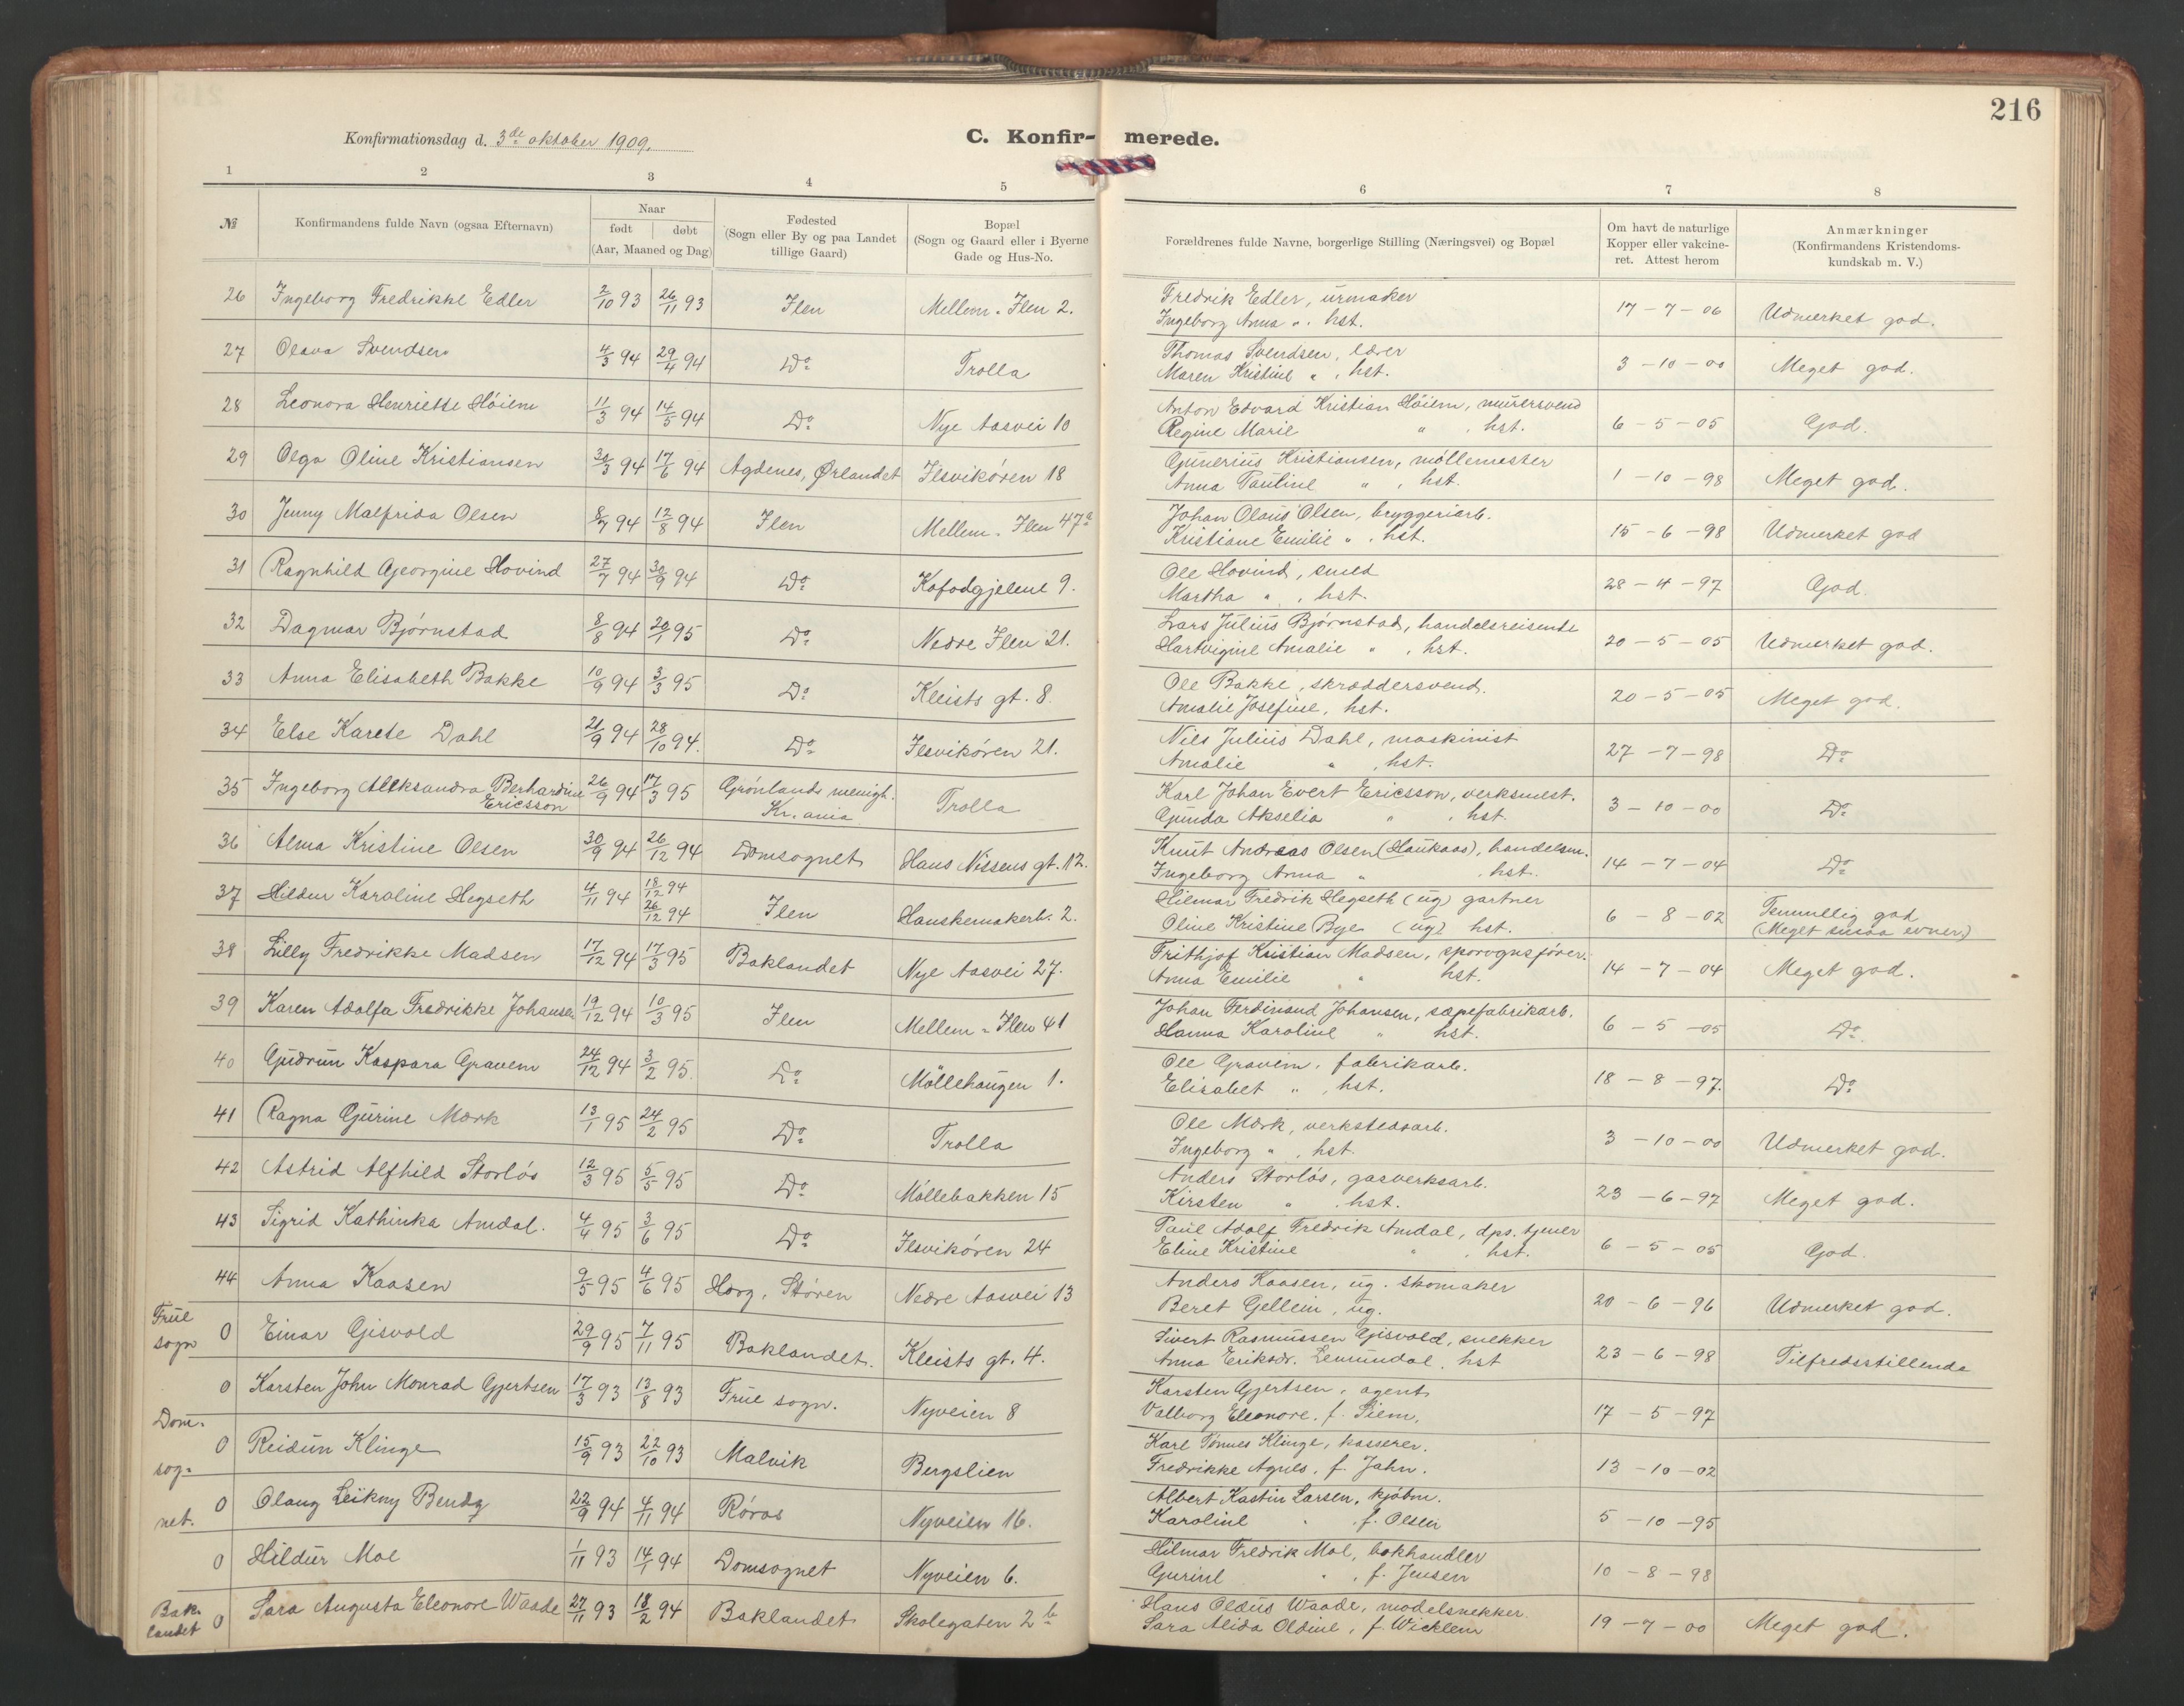 216
Konfirmationsdag d. 3de oktober 1909.
C. Konfir- merede.
1 2 3 4 5 6 7 8
№ | Konfirmandens fulde Navn (ogsaa Efternavn) | Naar født | døbt (Aar, Maaned og Dag) | Fødested (Sogn eller By og paa Landet tillige Gaard) | Bopæl (Sogn og Gaard eller i Byerne Gade og Hus-No. | Forældrenes fulde Navne, borgerlige Stilling (Næringsvei) og Bopæl | Om havt de naturlige Kopper eller vakcineret. Attest herom | Anmærkninger (Konfirmandens Kristendomskundskab m. V.)
26 Ingeborg Fredrikke Edler 2/10 93 26/11 93 Ilen Mellem-Ilen 2. Fredrik Edler, urmaker 17-7-06 Udmerket god.
Ingeborg Anna " . hst.
27 Olava Svendsen 4/3 94 29/4 94 Do Trolla Thomas Svendsen, lærer 3-10-00 Meget god.
Maren Kristine " , hst.
28 Leonora Henriette Høiem 11/3 94 14/5 94 Do Nye Aasvei 10 Anton Edvard Kristian Høiem, murersvend 6-5-05 God.
Regine Marie " , hst.
29 Olga Oline Kristiansen 30/3 94 17/6 94 Agdenes, Ørlandet Ilsvikøren 18 Gunerius Kristiansen, møllemester 1-10-98 Meget god.
Anna Pauline " , hst.
30 Jenny Malfrida Olsen 8/7 94 12/8 94 Ilen Mellem-Ilen 47a Johan Olaus Olsen, bryggeriarb. 15-6-98 Udmerket god
Kristiane Emilie " , hst.
31 Ragnhild Georgine Hovind 27/7 94 30/9 94 Do Kofodgjelene 9. Ole Hovind, smed 28-4-97 God.
Martha " , hst.
32 Dagmar Bjørnstad 8/8 94 20/1 95 Do Nedre Ilen 21. Lars Julius Bjørnstad, handelsreisende 20-5-05 Udmerket god.
Hartvigine Amalie " , hst.
33 Anna Elisabeth Bakke 10/9 94 3/3 95 Do Kleists gt. 8. Ole Bakke, skræddersvend. 20-5-05 Meget god.
Amalie Josefine, hst.
34 Else Karete Dahl 21/9 94 28/10 94. Do Ilsvikøren 21. Nils Julius Dahl, maskinist 27-7-98 Do
Amalie " , hst.
35 Ingeborg Aleksandra Berhardine 26/9 94 17/3 95 Grønlands menigh. Trolla Karl Johan Evert Ericsson, verksmest. 3-10-00 Do
Ericsson Kr.ania Gunda Akselia " , hst.
36 Alma Kristine Olsen 30/9 94 26/12 94 Domsognet Hans Nissens gt. 12. Knut Andreas Olsen (Haukaas), handelsm. 14-7-04 Do
Ingeborg Anna " , hst.
37 Hildur Karoline Hegseth 4/11 94 18/12 94 26/12 94 Ilen Hanskemakerb. 2. Hilmar Fredrik Hegseth (ug) gartner 6-8-02 Temmelig god
Oline Kristine Bye (ug) hst. (Meget smaa evner)
38 Lilly Fredrikke Madsen 17/12 94 17/3 95 Baklandet Nye Aasvei 27. Frithjof Kristian Madsen, sporvognsfører. 14-7-04 Meget god.
Anna Emilie " hst.
39 Karen Adolfa Fredrikke Johansen 19/12 94 10/3 95 Ilen Mellem-Ilen 41 Johan Ferdinand Johansen, sæpefabrikarb. 6-5-05 Do
Hanna Karoline " hst.
40 Gudrun Kaspara Gravem 24/12 94 3/2 95. Do Möllehaugen 1. Ole Gravem, fabrikarb. 18-8-97. Do
Elisabet " , hst.
41 Ragna Gurine Mork 13/1 95 24/2 95 Do Trolla Ole Mork, verkstedarb. 3-10-00 Udmerket god.
Ingeborg " , hst.
42 Astrid Alfhild Storløs 12/3 95 5/5 95 Do Møllebakken 15 Anders Storløs, gasverksarb. 23-6-97 Meget god.
Kirsten " , hst.
43 Sigrid Kathinka Amdal. 4/4 95 3/6 95 Do Ilsvikøren 24 Paul Adolf Fredrik Amdal, dps. tjener 6-5-05 God.
Eline Kristine " , hst.
44 Anna Kaasen 9/5 95 4/6 95 Horg, Støren Nedre Aasvei 13 Anders Kaasen, ug. skomaker 20-6-96 Udmerket god.
Beret Gellein, ug.
Frue sogn 0 Einar Gisvold 29/9 95 7/11 95 Baklandet. Kleists gt. 4. Sivert Rasmussen Gisvold, snekker 23-6-98 Tilfredsstillende
Anna Eriksdr. Lemundal, hst
Dom- 0 Karsten John Monrad Gjertsen 17/3 93 13/8 93 Frue sogn. Nyveien 8 Karsten Gjertsen, agent 17-5-97
Valborg Eleonore. f. Siem.
sog- 0 Reidun Klinge 15/9 93 22/10 93 Malvik Bergslien Karl Tønnes Klinge, kasserer. 13-10-02
Fredrikke Agnes, f. Jahn.
net. 0 Olaug Leikny Bendz 22/9 94 4/11 94 Røros Nyveien 16. Albert Kastin Larsen, kjøbm. 5-10-95
Karoline " , f. Olsen
0 Hildur Moe 1/11 93 14/1 94 Domsognet Nyveien 6. Hilmar Fredrik Moe, bokhandler 10-8-98
Gurine " , f. Jensen
Bak-landet 0 Sara Augusta Eleonore Waade 27/11 93 18/2 94 Baklandet Skolegaten 2b Hans Oldus Waade, modelsnekker. 19-7-00 Meget god.
Sara Alida Oldine, f. Wicklem